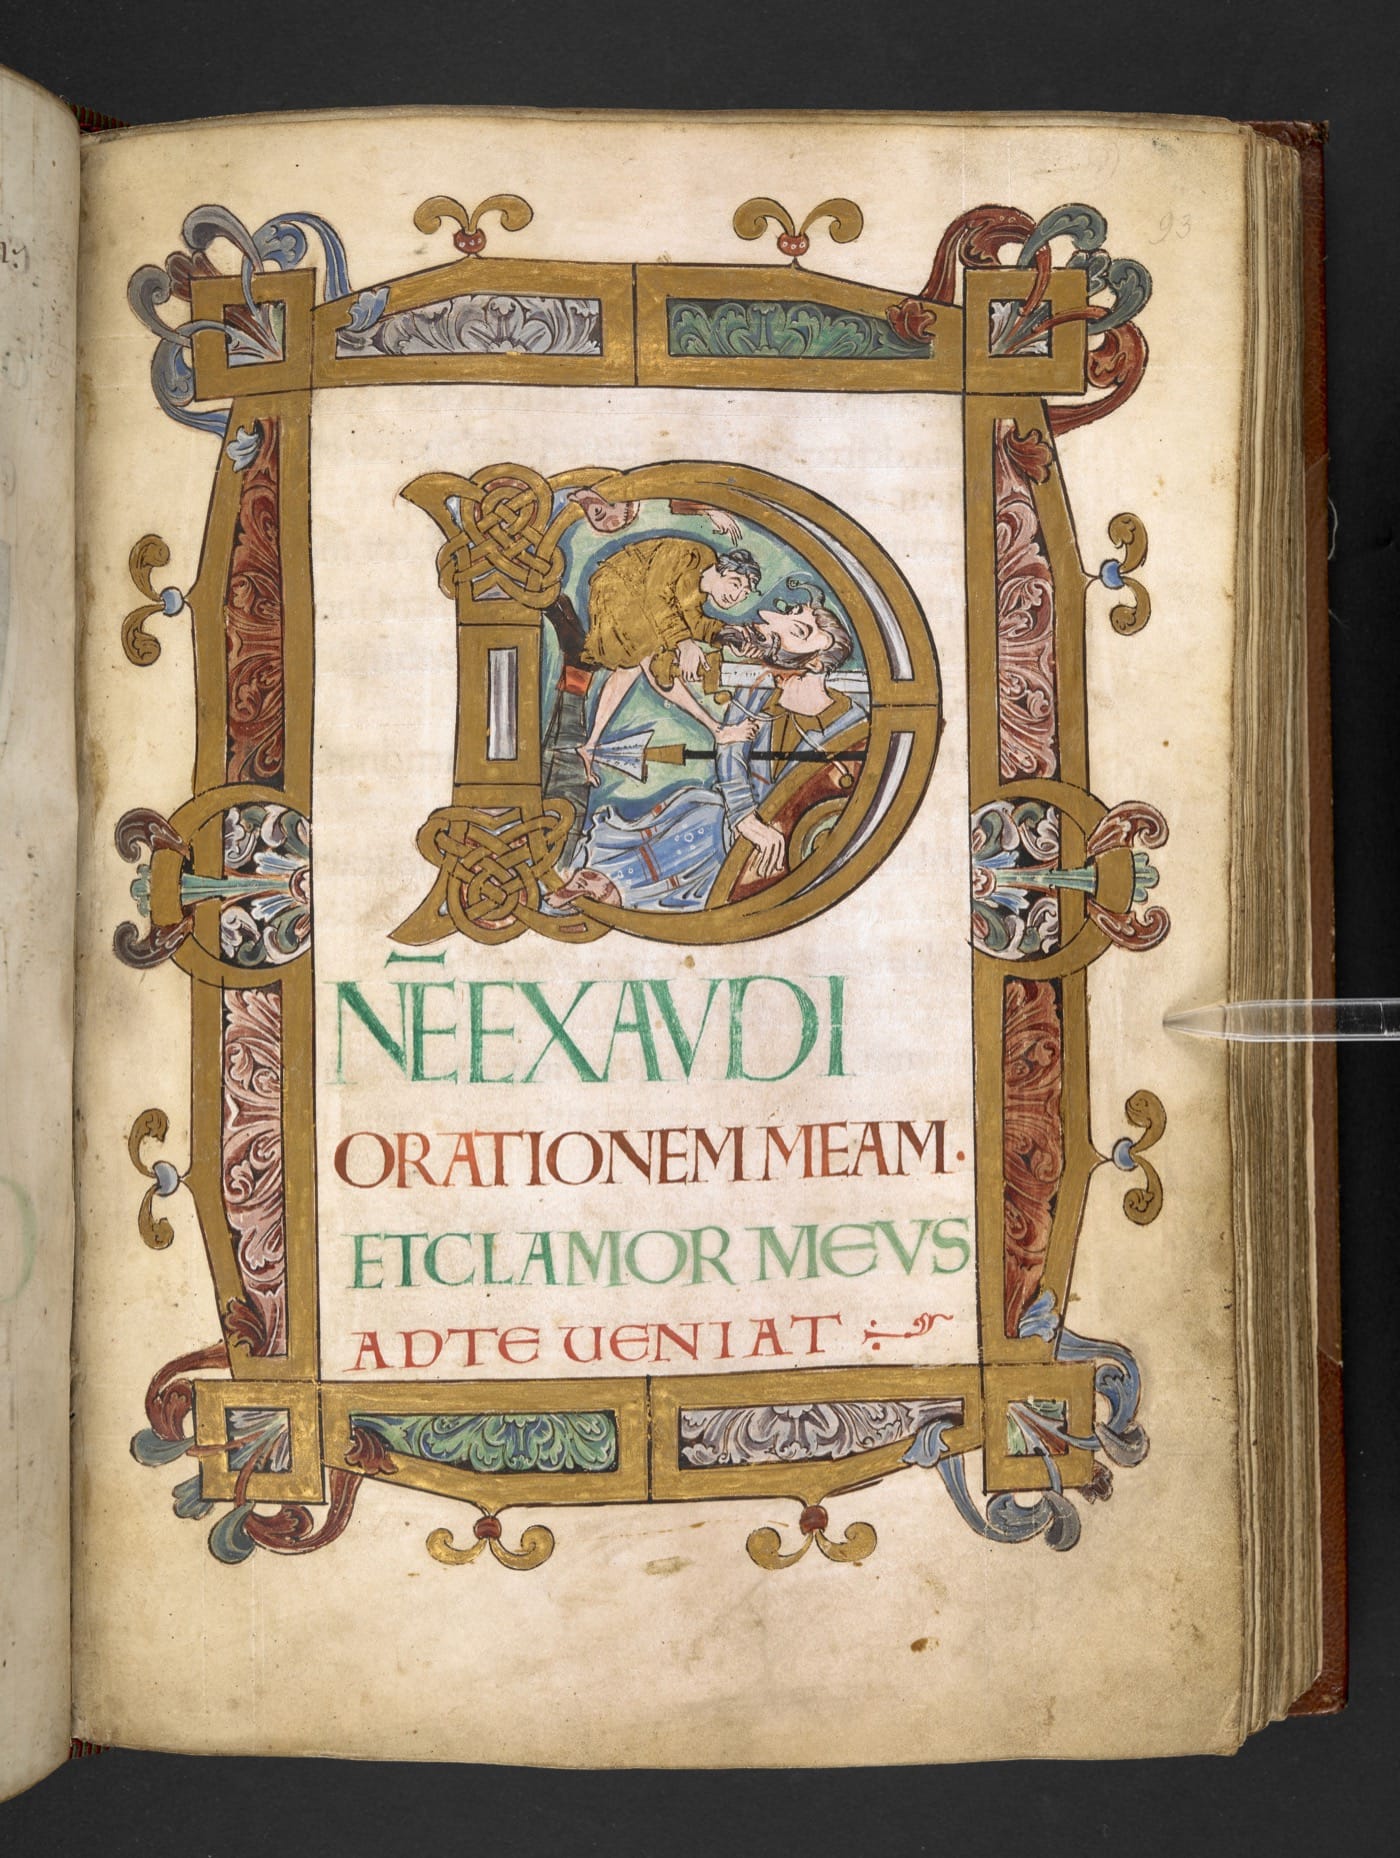 93
D
NĒEXAVDI
ORATIONEM MEAM·
ET CLAMOR MEVS
AD TE UENIAT